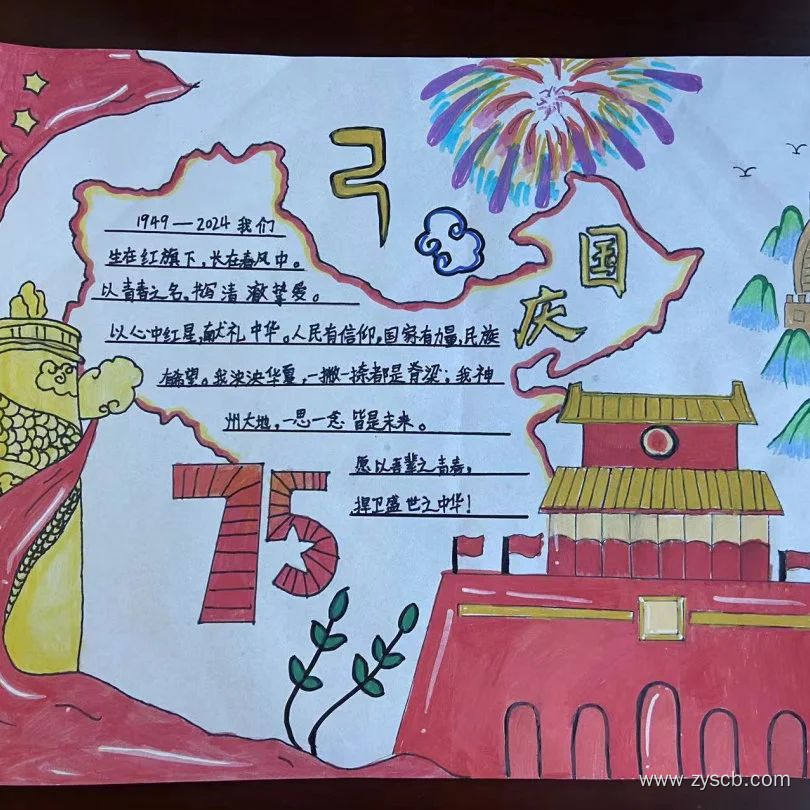 国
庆
1949—2024 我们
生在红旗下,长在春风中。
以青春之名,书写清澈挚爱。
以心中红星,献礼中华。人民有信仰,国家有力量,民族
有希望。我泱泱华夏,一撇一捺都是脊梁;我神
州大地,一思一念皆是未来。
愿以吾辈之青春,
捍卫盛世之中华!
75
www.zyscb.com